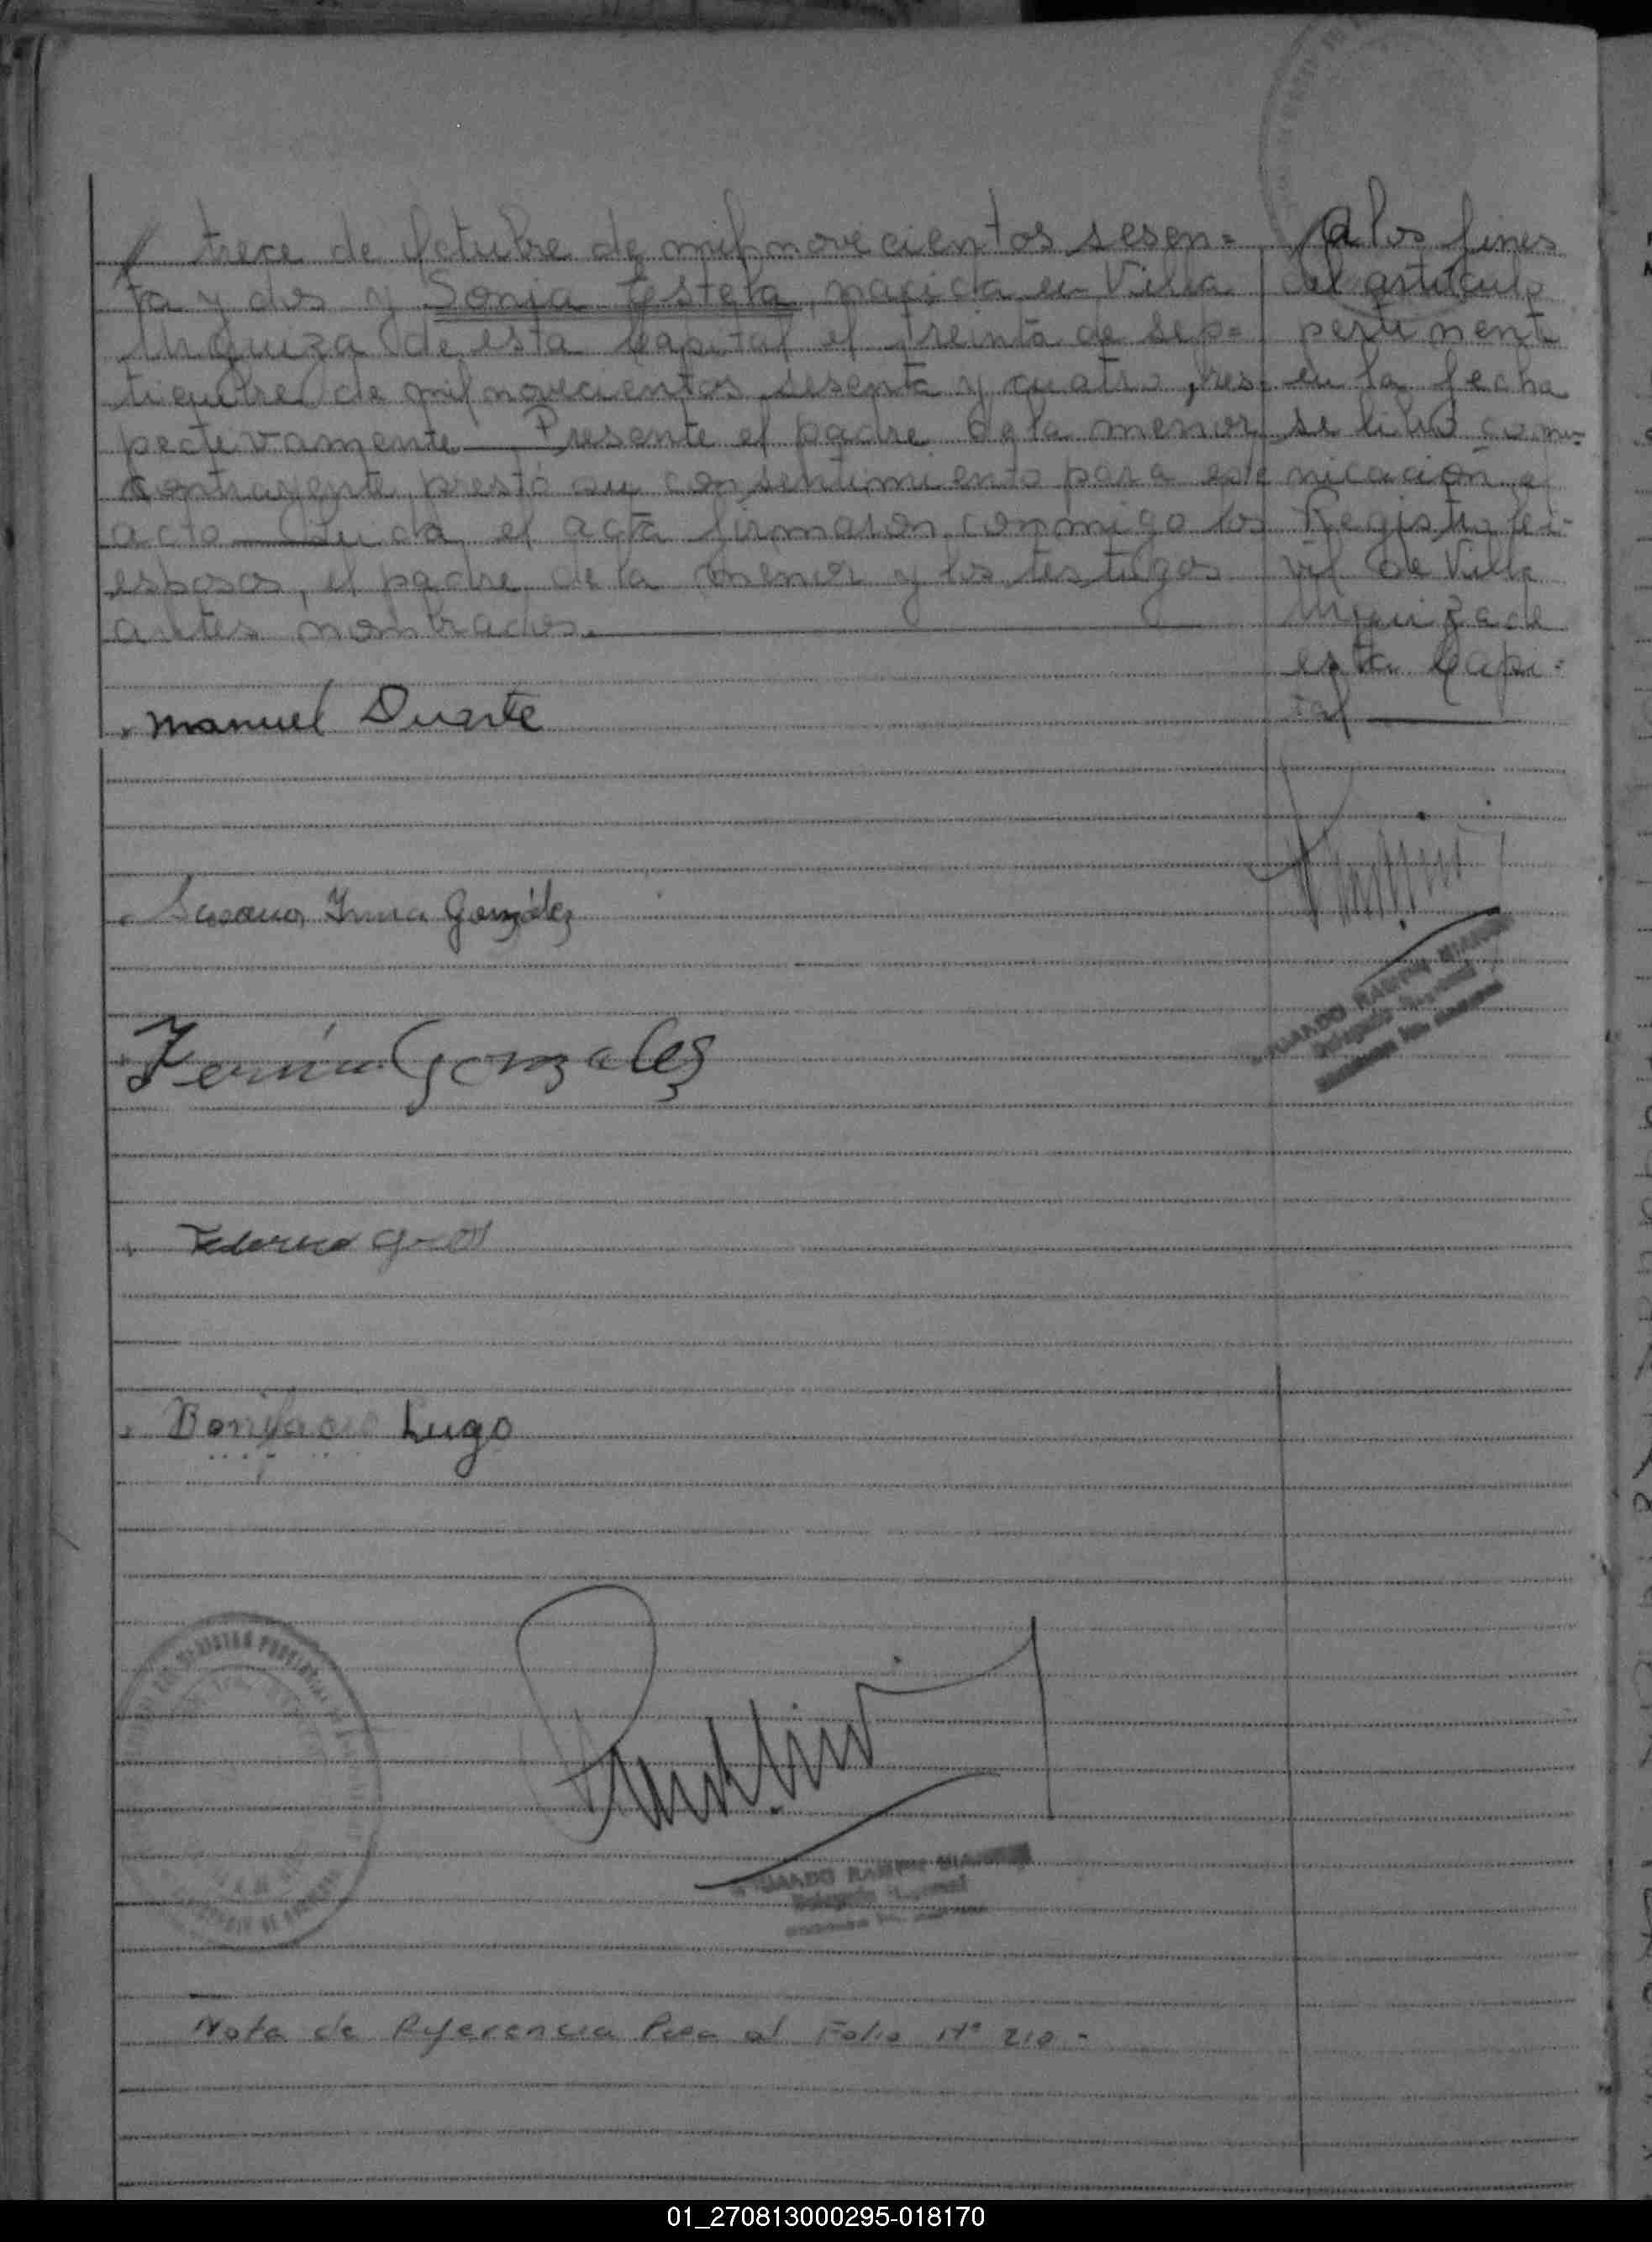 trece de Octubre de mil novecientos sesen=
ta y dos y Sonia Estela, nacida en Villa
Urquiza de esta Capital el treinta de sep=
tiembre de mil novecientos sesenta y cuatro, res=
pectivamente. Presente el padre de la menor
contrayente prestó su consentimiento para este
acto. Leída el acta firmaron conmigo los
esposos, el padre de la menor y los testigos
antes nombrados.
A los fines
del artículo
pertinente
en la fecha
se libró comu=
nicación al
Registro Ci=
vil de Villa
Urquiza de
esta Capi=
tal
Manuel Duarte
Susana Irma González
Gonzalez
Federico
Bonifacio Lugo
RAMON
Delegado
RAMON
Delegado
Nota de Referencia Pasa al Folio Nº 210.-
01_270813000295-018170